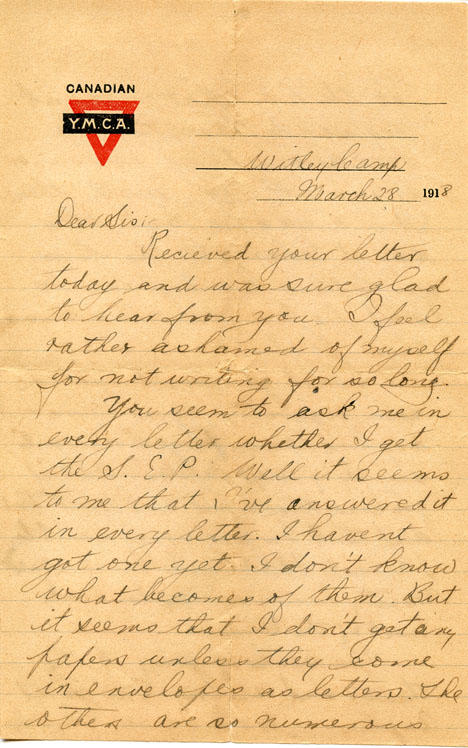 CANADIAN
Y.M.C.A.
Witley Camp
March 28 1918
Dear Sis:
Recieved your letter
today and was sure glad
to hear from you. I feel
rather ashamed of myself
for not writing for so long.
You seem to ask me in
every letter whether I get
the S. E. P. Well it seems
to me that I've answered it
in every letter. I havent
got one yet. I don't know
what becomes of them. But
it seems that I don't get any
papers unless they come
in envelopes as letters. The
others are so numerous